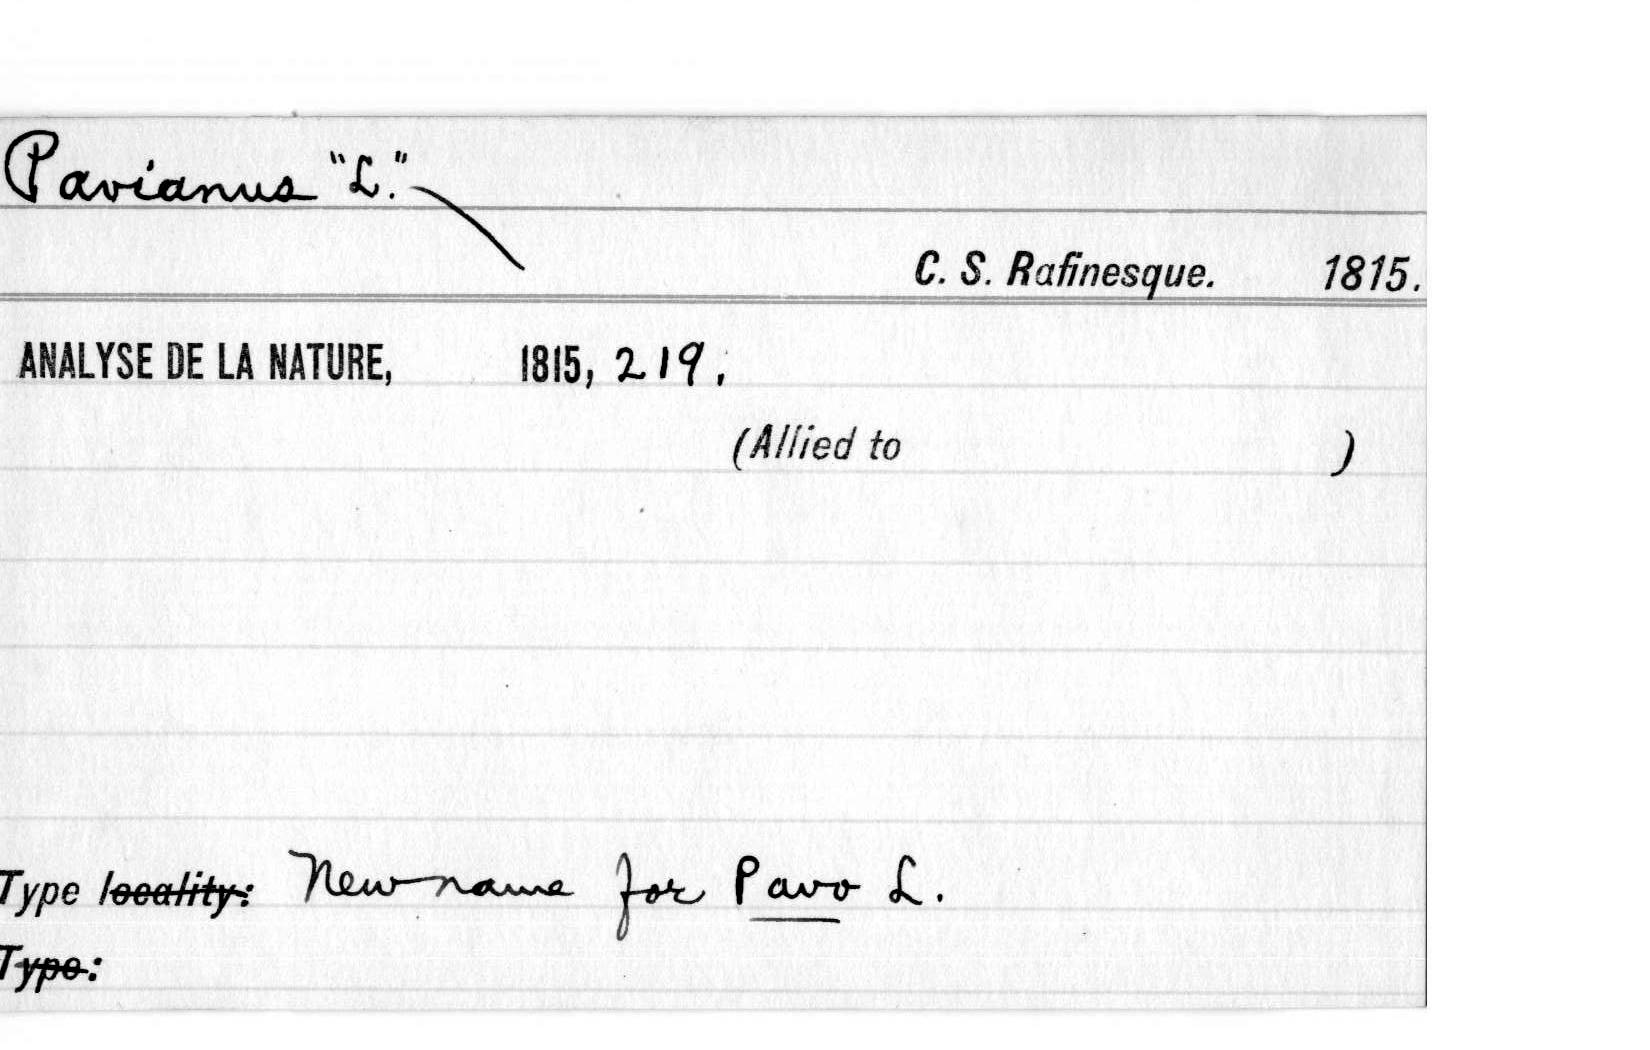 Pavianus "L."
C. S. Rafinesque. 1815.
ANALYSE DE LA NATURE, 1815, 219.
(Allied to )
Type locality: New name for Pavo L.
Type: